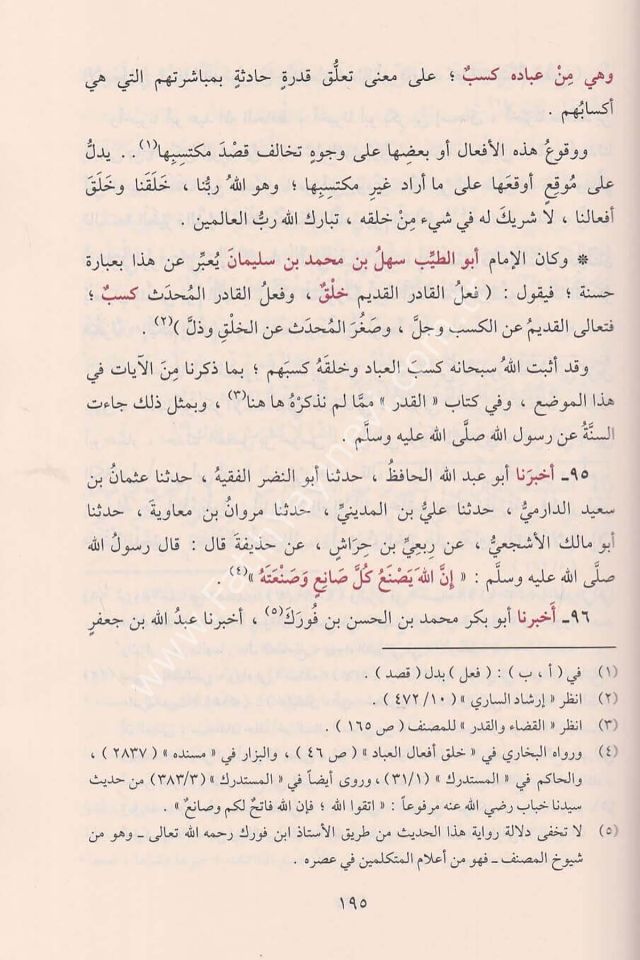 وهي مِنْ عباده كسبٌ ؛ على معنى تعلُّق قدرةٍ حادثةٍ بمباشرتهم التي هي
أكسابُهم .
ووقوعُ هذه الأفعال أو بعضِها على وجوهٍ تخالف قصْدَ مكتسِبِها(١) .. يدلُّ
على مُوقِعٍ أوقعَها على ما أراد غيرِ مكتسِبِها ؛ وهو اللهُ ربُّنا ، خلَقَنا وخلَقَ
أفعالنا ، لا شريكَ له في شيء مِنْ خلقه ، تبارك الله ربُّ العالمين .
* وكان الإمام أبو الطيِّب سهلُ بن محمد بن سليمانَ يُعبِّر عن هذا بعبارة
حسنة ؛ فيقول : ( فعلُ القادر القديم خلْقٌ ، وفعلُ القادر المُحدَث كسبٌ ؛
فتعالى القديمُ عن الكسب وجلَّ ، وصغُرَ المُحدَث عن الخلْقِ وذلَّ )(٢) .
وقد أثبت اللهُ سبحانه كسبَ العباد وخلقَهُ كسبَهم ؛ بما ذكرنا مِنَ الآيات في
هذا الموضع ، وفي كتاب « القدر » ممَّا لم نذكرْهُ ها هنا(٣) ، وبمثل ذلك جاءت
السنَّة عن رسول الله صلَّى الله عليه وسلَّم .
٩٥ـ أخبرَنا أبو عبد الله الحافظُ ، حدثنا أبو النضر الفقيهُ ، حدثنا عثمانُ بن
سعيد الدارميُّ ، حدثنا عليُّ بن المدينيِّ ، حدثنا مروانُ بن معاويةَ ، حدثنا
أبو مالك الأشجعيُّ ، عن رِبعيِّ بن حِرَاش ، عن حذيفةَ قال : قال رسولُ الله
صلَّى الله عليه وسلَّم : « إِنَّ اللهَ يَصْنَعُ كُلَّ صَانِعٍ وَصَنْعَتَهُ »(٤) .
٩٦ـ أَخبرنا أبو بكر محمد بن الحسن بن فُورَكَ(٥) ، أخبرنا عبدُ الله بن جعفرٍ
(١) في ( أ ، ب ) : ( فعل ) بدل ( قصد ) .
(٢) انظر « إرشاد الساري » ( ١٠/ ٤٧٢ ) .
(٣) انظر « القضاء والقدر » للمصنف ( ص ١٦٥ ) .
(٤) ورواه البخاري في « خلق أفعال العباد » ( ص ٤٦ ) ، والبزار في « مسنده » ( ٢٨٣٧ ) ،
والحاكم في « المستدرك » ( ٣١/١ ) ، وروى أيضاً في « المستدرك » ( ٣٨٣/٣ ) من حديث
سيدنا خباب رضي الله عنه مرفوعاً : « اتقوا الله ؛ فإن الله فاتحٌ لكم وصانعٌ » .
(٥) لا تخفى دلالة رواية هذا الحديث من طريق الأستاذ ابن فورك رحمه الله تعالى ـ وهو من
شيوخ المصنف ـ فهو من أعلام المتكلمين في عصره .
١٩٥